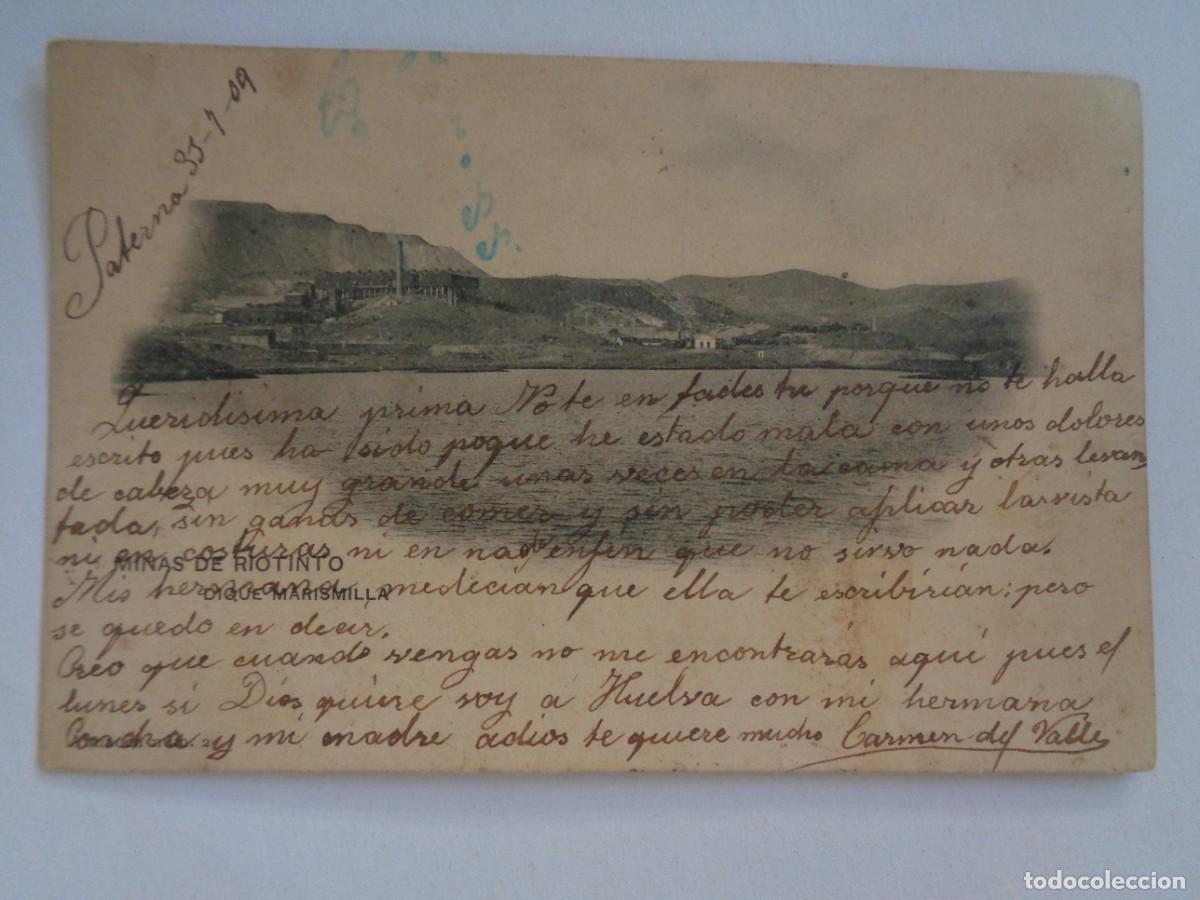 Paterna 35-7-09
Queridisima prima No te en fades tu porque no te halla
escrito pues ha sido poque he estado mala con unos dolores
de cabeza muy grande unas veces en la cama y otras levan
tada, sin ganas de comer y sin poder aplicar la vista
ni en costuras ni en nada enfin que no sirvo nada.
MINAS DE RIOTINTO
DIQUE MARISMILLA
Mis hermana, medecian que ella te escribirián: pero
se quedo en decir.
Creo que cuando vengas no me encontrarás aquí pues el
lunes si Dios quiere voy á Huelva con mi hermana
Concha y mi madre adios te quiere mucho Carmen del Valle
todocoleccion